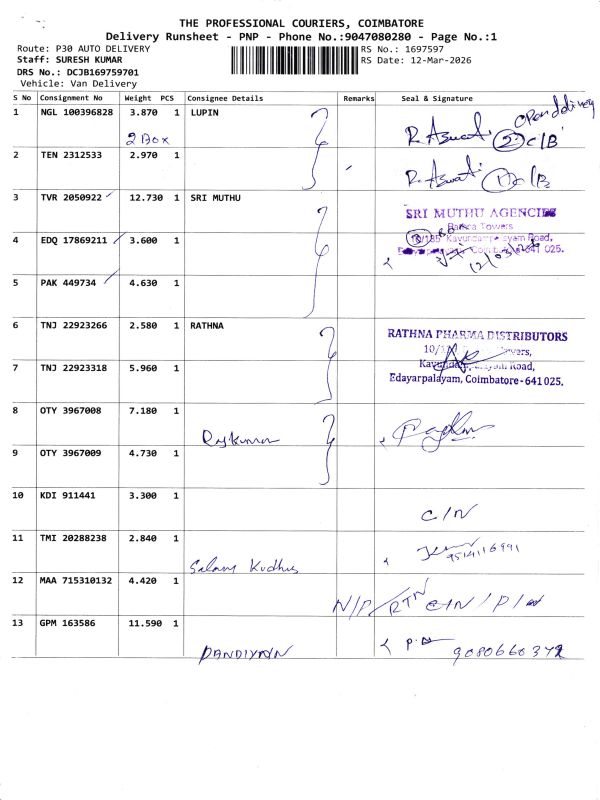 THE PROFESSIONAL COURIERS, COIMBATORE
Delivery Runsheet - PNP - Phone No.:9047080280 - Page No.:1
Route: P30 AUTO DELIVERY RS No.: 1697597
Staff: SURESH KUMAR RS Date: 12-Mar-2026
DRS No.: DCJB169759701
Vehicle: Van Delivery
S No Consignment No Weight PCS Consignee Details Remarks Seal & Signature
1 NGL 100396828 3.870 1 LUPIN
2 Box
2 TEN 2312533 2.970 1
3 TVR 2050922 12.730 1 SRI MUTHU
SRI MUTHU AGENCIES
Rathna Towers
4 EDQ 17869211 3.600 1
12/03/26
5 PAK 449734 4.630 1
6 TNJ 22923266 2.580 1 RATHNA
RATHNA PHARMA DISTRIBUTORS
7 TNJ 22923318 5.960 1
Edayarpalayam, Coimbatore-641 025.
8 OTY 3967008 7.180 1
Rajkumar
9 OTY 3967009 4.730 1
10 KDI 911441 3.300 1
C/N
11 TMI 20288238 2.840 1
9514116991
Salam Kudhus
12 MAA 715310132 4.420 1
N/P/RTN
13 GPM 163586 11.590 1
P.N
PANDIYAN 9080660372